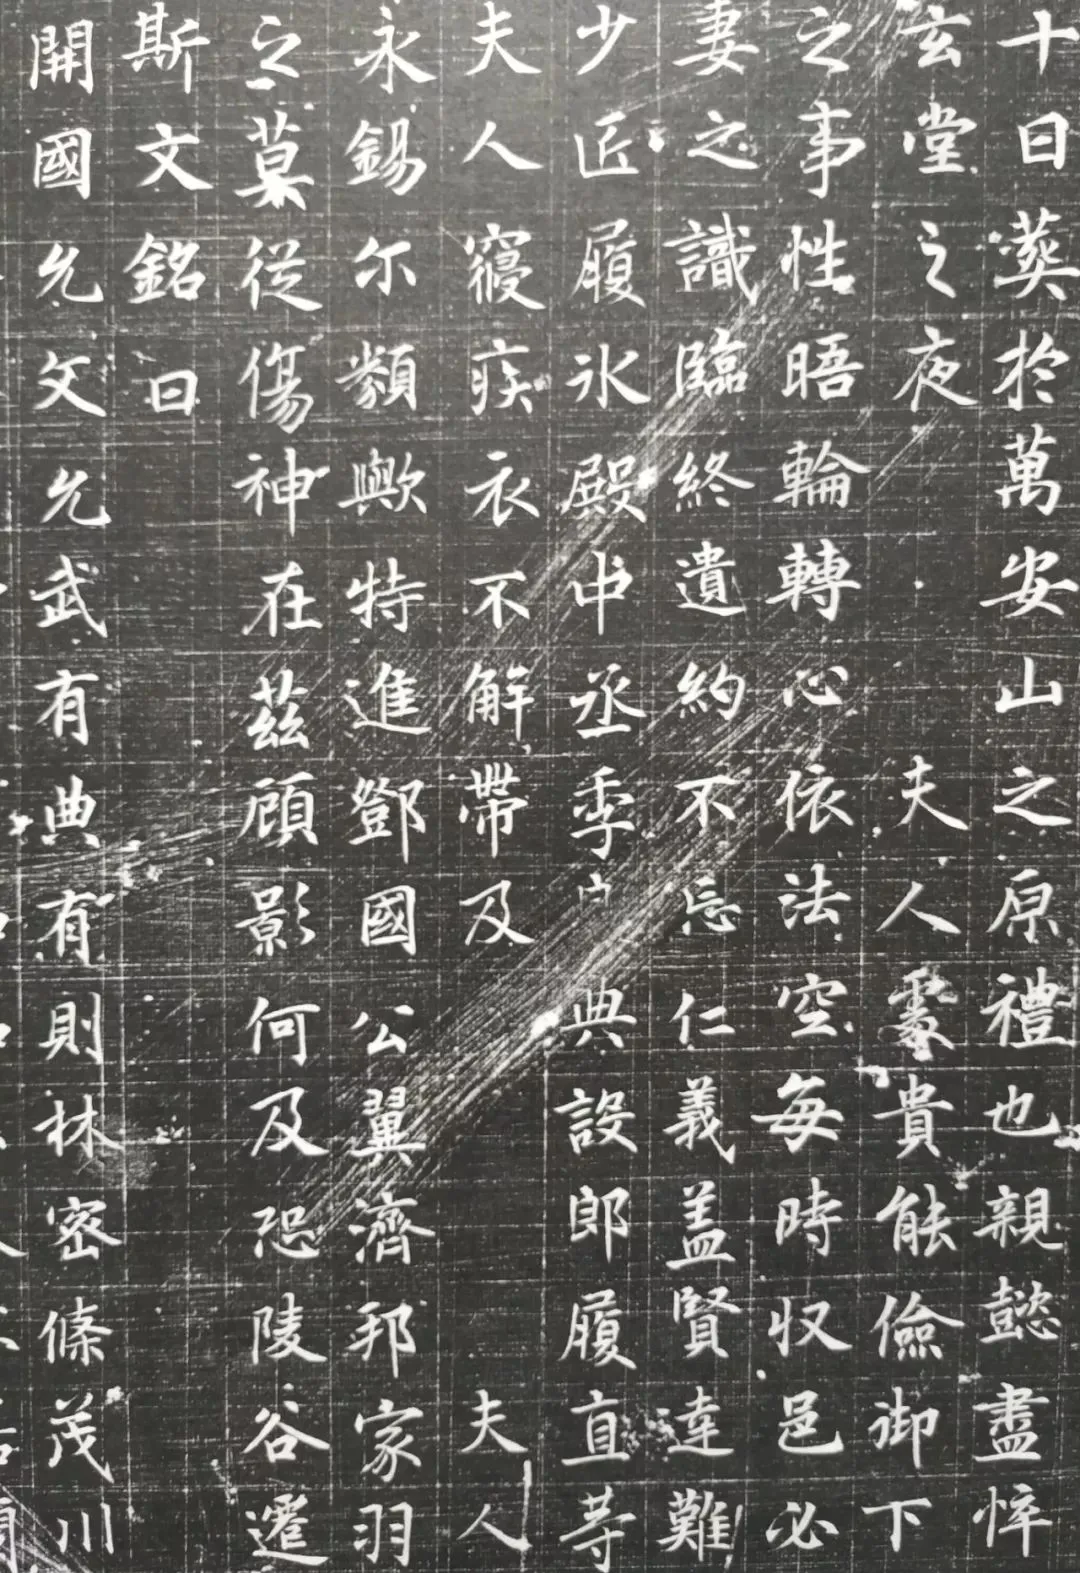 十日葬於萬安山之原禮也親懿盡悴
玄堂之夜夫人處貴能儉御下
之事性晤輪轉心依法空每時収邑必
妻之識臨終遺約不忘仁義盖賢達難
少匠履氷殿中丞季户典設郎履直等
夫人寢疾衣不解帶及夫人
永錫尓類歟特進鄧國公翼濟邦家羽
之莫從傷神在茲顧影何及恐陵谷遷
斯文銘曰
開國允文允武有典有則林密條茂川